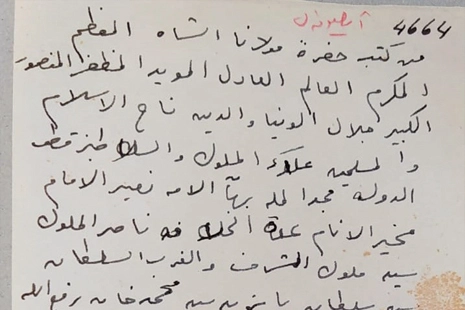 4664
من كتب حضرة مولانا الشاه المعظم
المكرم العالم العادل المويد المظفر المنصور
الكبير جلال الدنيا والدين تاج الاسلام
والمسلمين علاء الملوك والسلاطين قطب
الدولة مجد المله بهآ الامه نصير الامام
مخير الانام عدة الخلافه ناصر الملوك
سيد ملوك الشرق والغرب السلطان
سلطان محمد خان رفع الله